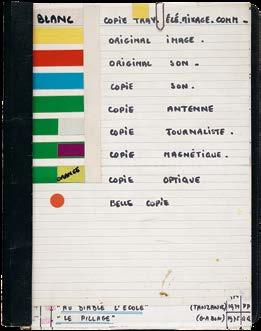 BLANC COPIE TRAV. TÉLÉ.MIXAGE.COMM _
ORIGINAL IMAGE.
ORIGINAL SON _
COPIE SON.
COPIE ANTENNE
COPIE JOURNALISTE.
COPIE MAGNÉTIQUE.
ORANGE COPIE OPTIQUE
BELLE COPIE
"AU DIABLE L'ECOLE" (TANZANIE)
"LE PILLAGE" (GABON)